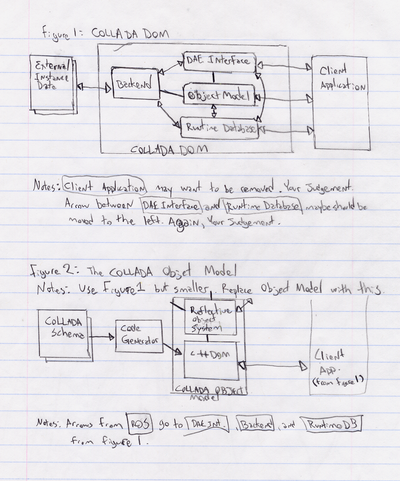 Figure 1: COLLADA DOM
External
Instance
Data
Backend
DAE Interface
Object Model
Runtime Database
Client
Application
COLLADA DOM
Notes: Client Application may want to be removed. Your Judgement.
Arrow between DAE Interface and Runtime Database maybe should be
moved to the left. Again, Your Judgement.
Figure 2: The COLLADA Objet Model
Notes: Use Figure 1 but smaller, Replace Object Model with this
COLLADA
Schema
Code
Generator
Reflective
Object
System
C++ DOM
COLLADA Object
Model
Client
App.
(from figure 1)
Notes: Arrows from ROS go to DAE Int., Backend, and Runtime DB
from figure 1.